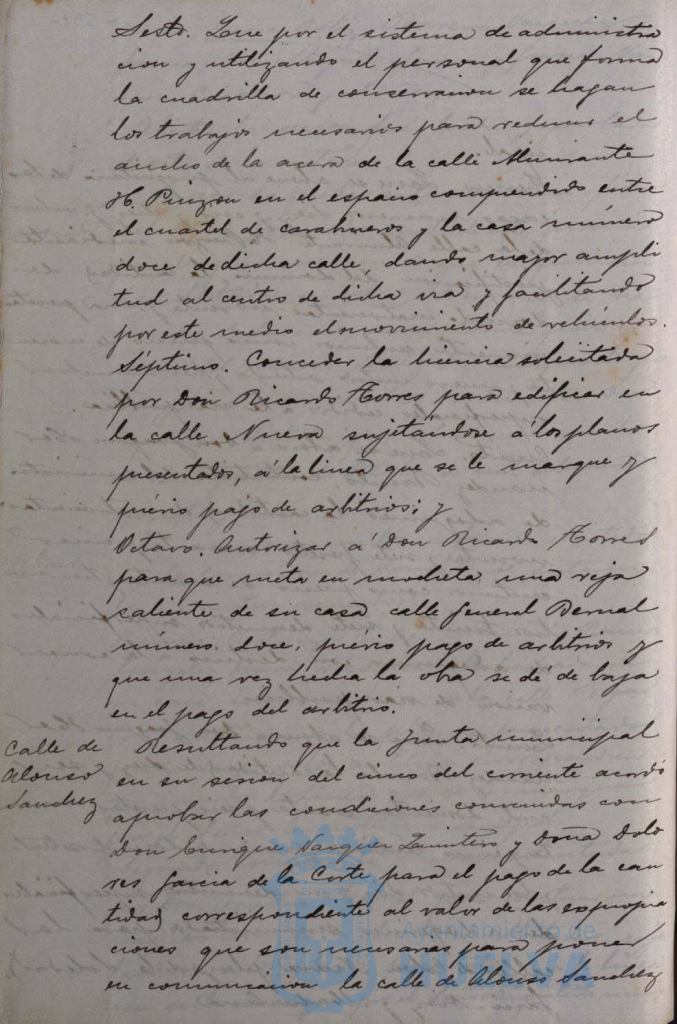 Sesto. Que por el sistema de administra
cion y utilizando el personal que forma
la cuadrilla de conservacion se hagan
los trabajos necesarios para reducir el
ancho de la acera de la calle Almirante
H. Pinzon en el espacio comprendido entre
el cuartel de carabineros y la casa número
doce de dicha calle, dando mayor ampli
tud al centro de dicha via y facilitando
por este medio el movimiento de vehiculos.
Séptimo. Conceder la licencia solicitada
por Don Ricardo Torres para edificar en
la calle Nueva sujetándose á los planos
presentados, á la linea que se le marque y
prévio pago de arbitrios; y
Octavo. Autorizar á Don Ricardo Torres
para que meta en mocheta una reja
saliente de su casa calle General Bernal
número doce, prévio pago de arbitrios y
que una vez hecha la obra se dé de baja
en el pago del arbitrio.
Calle de
Alonso
Sanchez
Resultando que la Junta municipal
en su sesion del cinco del corriente acordó
aprobar las condiciones convenidas con
Don Enrique Vazquez Quintero y Doña Dolo
res Garcia de la Corte para el pago de la can
tidad correspondiente al valor de las expropia
ciones que son necesarias para poner
en comunicacion la calle de Alonso Sanchez
Ayuntamiento de
HUELVA